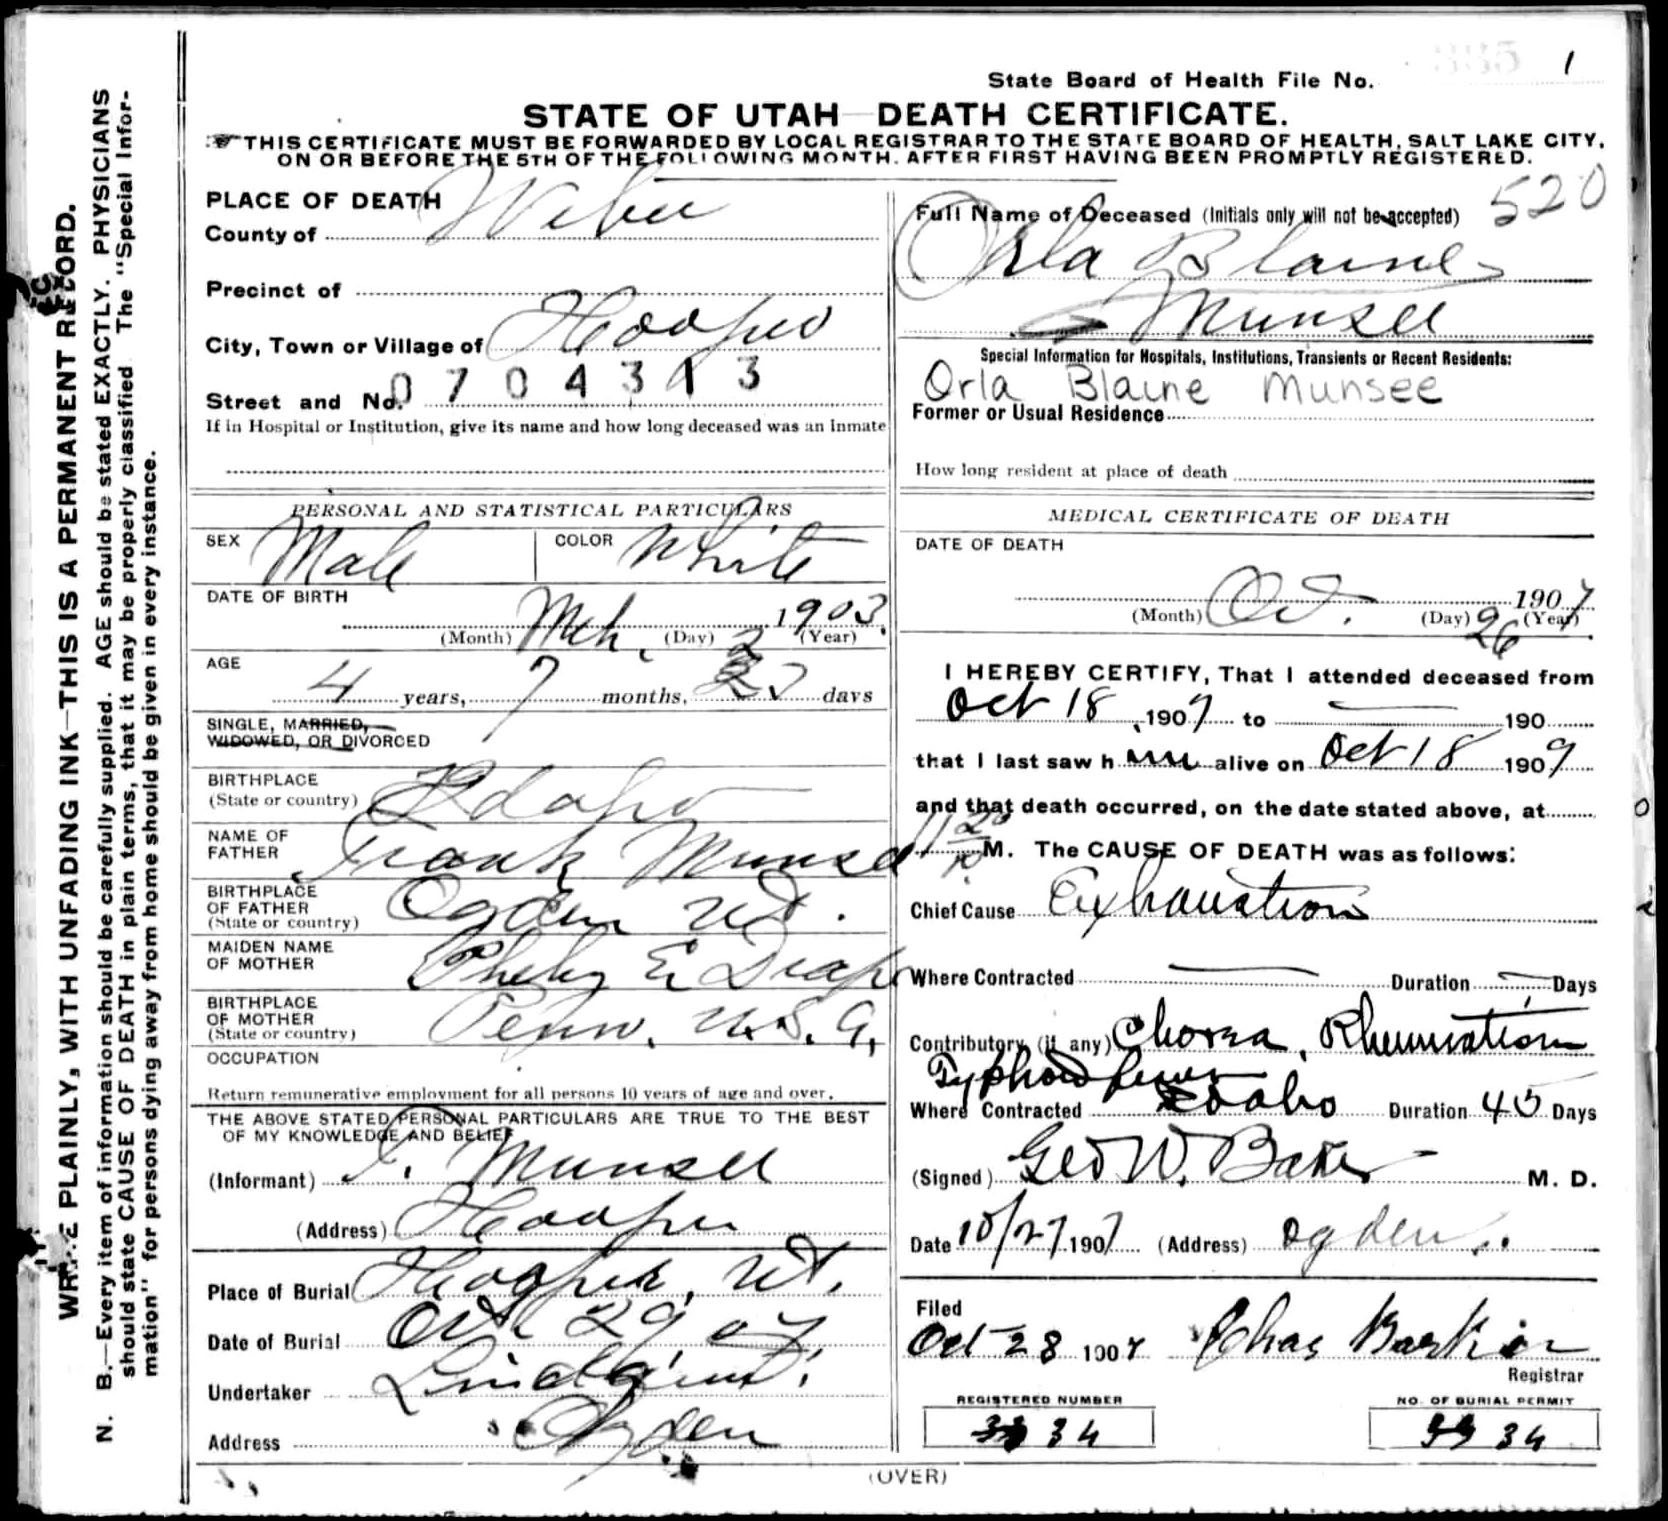 335 1
State Board of Health File No.
STATE OF UTAH—DEATH CERTIFICATE.
THIS CERTIFICATE MUST BE FORWARDED BY LOCAL REGISTRAR TO THE STATE BOARD OF HEALTH, SALT LAKE CITY,
ON OR BEFORE THE 5TH OF THE FOLLOWING MONTH, AFTER FIRST HAVING BEEN PROMPTLY REGISTERED.
WRITE PLAINLY, WITH UNFADING INK—THIS IS A PERMANENT RECORD.
N. B.—Every item of information should be carefully supplied. AGE should be stated EXACTLY. PHYSICIANS
should state CAUSE OF DEATH in plain terms, that it may be properly classified The "Special Infor-
mation" for persons dying away from home should be given in every instance.
PLACE OF DEATH
County of Weber
Precinct of
City, Town or Village of Hooper
Street and No. 0704313
If in Hospital or Institution, give its name and how long deceased was an inmate
PERSONAL AND STATISTICAL PARTICULARS
SEX Male COLOR White
DATE OF BIRTH
(Month) Mch. (Day) 3 1903. (Year)
AGE
4 years, 7 months, days
SINGLE, MARRIED,
WIDOWED, OR DIVORCED
BIRTHPLACE
(State or country) Idaho
NAME OF
FATHER Frank Munsee
BIRTHPLACE
OF FATHER
(State or country) Ogden Ut.
MAIDEN NAME
OF MOTHER Pheby E Draper
BIRTHPLACE
OF MOTHER
(State or country) Penn. U.S.A.
OCCUPATION
Return remunerative employment for all persons 10 years of age and over.
THE ABOVE STATED PERSONAL PARTICULARS ARE TRUE TO THE BEST
OF MY KNOWLEDGE AND BELIEF
(Informant) F. Munsee
(Address) Hooper
Place of Burial Hooper, Ut.
Date of Burial Oct 29 07
Undertaker Lindquist
Address Ogden
520
Full Name of Deceased (Initials only will not be accepted)
Orla Blaine
Munsee
Special Information for Hospitals, Institutions, Transients or Recent Residents:
Orla Blaine Munsee
Former or Usual Residence
How long resident at place of death
MEDICAL CERTIFICATE OF DEATH
DATE OF DEATH
(Month) Oct. (Day) 26 1907 (Year)
I HEREBY CERTIFY, That I attended deceased from
Oct 18, 1907 to — 190
that I last saw him alive on Oct 18 1907
and that death occurred, on the date stated above, at
11 20 P M. The CAUSE OF DEATH was as follows:
Chief Cause Exhaustion
Where Contracted — Duration — Days
Contributory (if any) Chorea, Rheumatism
Typhoid fever
Where Contracted Idaho Duration 45 Days
(Signed) Geo W. Baker M. D.
Date 10/27 1907 (Address) Ogden
Filed
Oct 28 1907 Chas Barker
Registrar
REGISTERED NUMBER
34
NO. OF BURIAL PERMIT
34
(OVER)